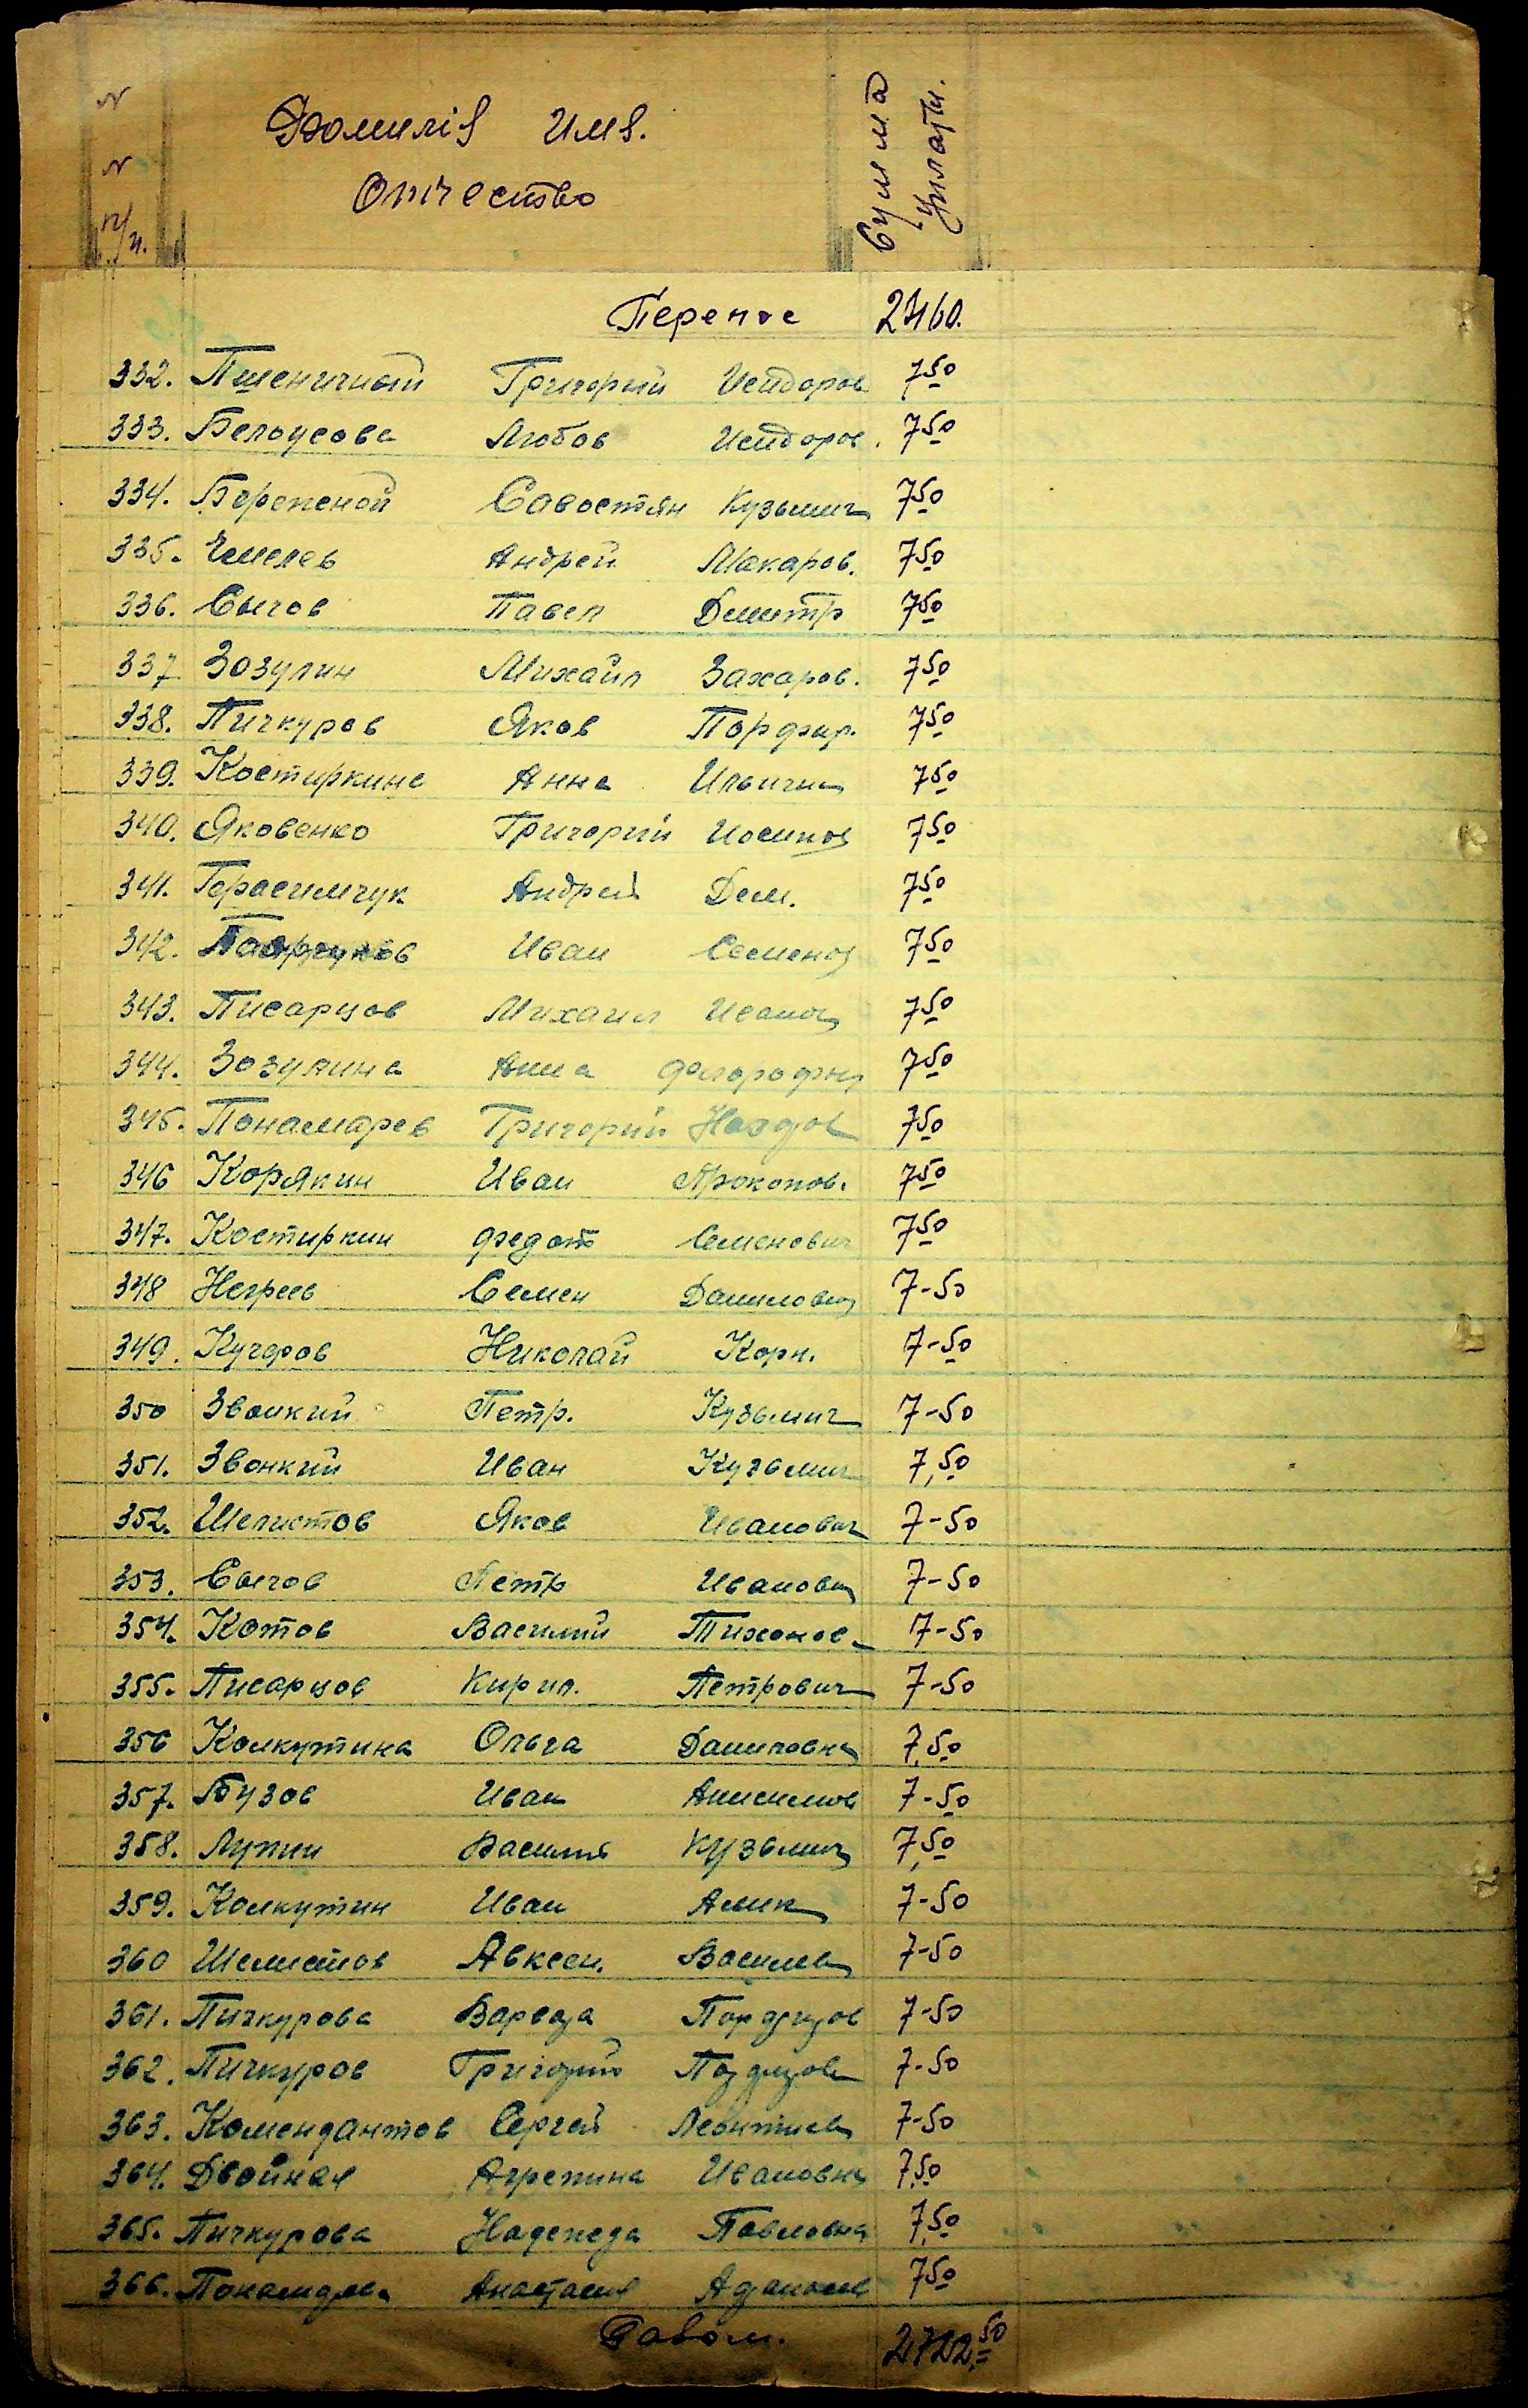 N N п/п. Фамилія Имя. Отчество Сумма уплаты.
Перенос 2460.
332. Пшеничный Григорий Исидоров 7 50
333. Белоусова Любов Исидоров. 7 50
334. Бережной Савостян Кузьмич 7 50
335. Чмелев Андрей Макаров. 7 50
336. Сычов Павел Дмитр 7 50
337 Зозулин Михайл Захаров. 7 50
338. Пичкуров Яков Порфир. 7 50
339. Костиркина Анна Ильична 7 50
340. Яковенко Григорий Иосипов 7 50
341. Герасимчук Андрей Дем. 7 50
342. Иван Семенов 7 50
343. Писарцов Михаил Иванов 7 50
344. Зозулина Анна 7 50
345. Понамарев Григорий 7 50
346 Корякин Иван Прокопов. 7 50
347. Костиркин Федот Семенович 7 50
348 Негреев Семен Данилович 7-50
349. Кучеров Николай Корн. 7-50
350 Звонкий Петр. Кузьмич 7-50
351. Звонкий Иван Кузьмич 7,50
352. Шелистов Яков Иванович 7-50
353. Сычов Петр Иванович 7-50
354. Котов Василий Тихонов. 7-50
355. Писарцов Кирил. Петрович 7-50
356 Колкутина Ольга Даниловна 7,50
357. Бузов Иван Анисимов 7-50
358. Лупин Василий Кузьмич 7,50
359. Колкутин Иван 7-50
360 Шелистов Авксен. Васильев 7-50
361. Пичкурова Порфиров 7-50
362. Пичкуров Григорий 7-50
363. Комендантов Сергей Леонтиев 7-50
364. Двойная Агрепина Ивановна 7,50
365. Пичкурова Надежда Павловна 7,50
366. Анастасия 7 50
2722,50